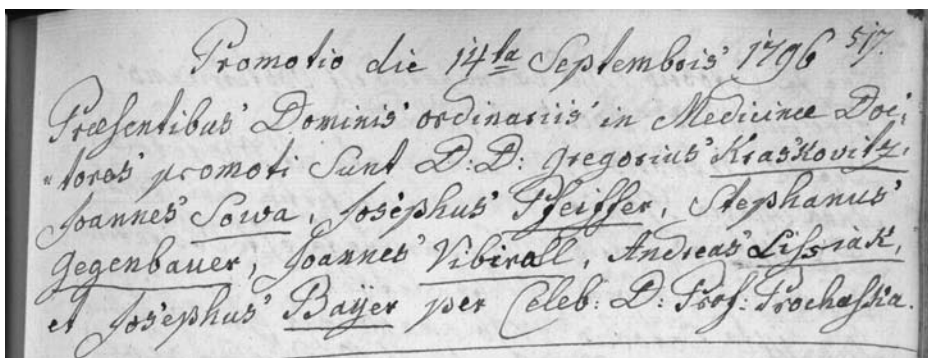 Promotio die 14ta Septembris 1796 517.
Præsentibus Dominis ordinariis in Medicinæ Doc-
"tores promoti sunt D: D: Gregorius Kraskovitz,
Joannes Sowa, Josephus Pfeiffer, Stephanus
Gegenbauer, Joannes Vibirall, Andreas Lissiak,
et Josephus Bayer per Celeb: D: Prof: Prochaska.